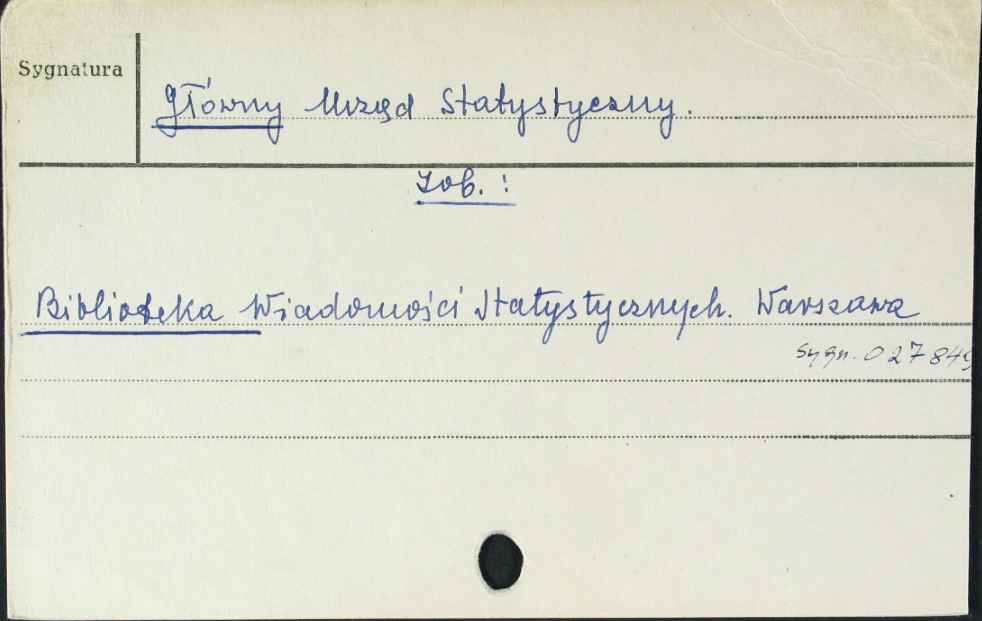 Sygnatura
Główny Urząd Statystyczny.
Zob. :
Biblioteka Wiadomości Statystycznych. Warszawa
Sygn. 027849